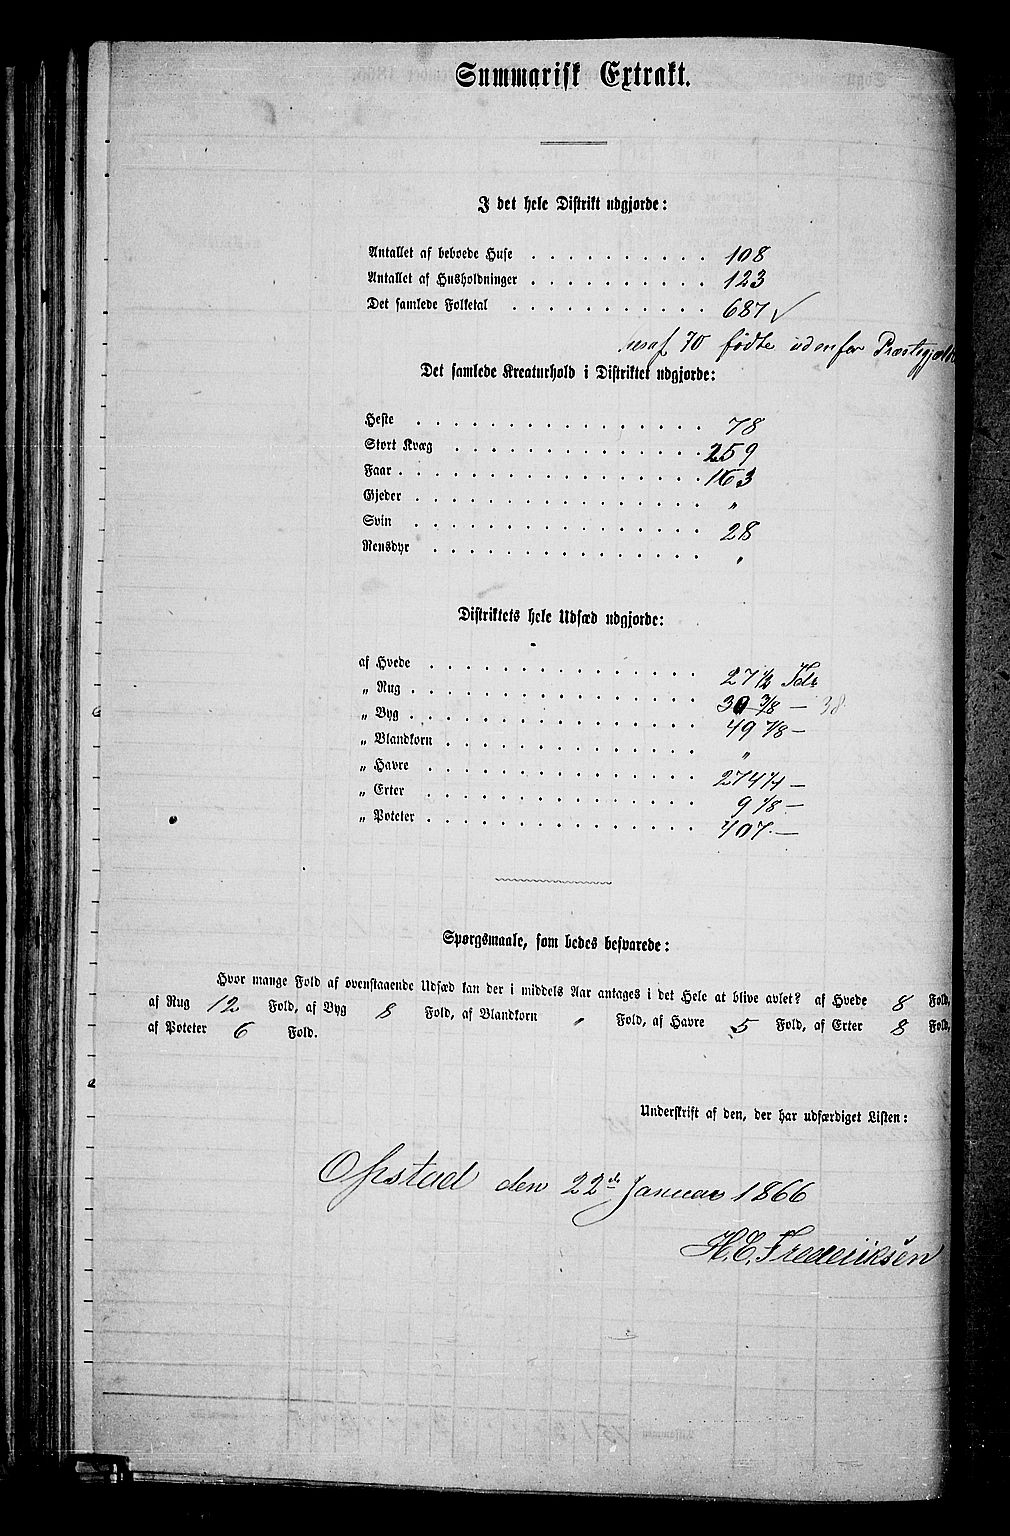 Summarisk Extrakt.
I det hele Distrikt udgjorde:
Antallet af beboede Huse . . . . . . . . . . 108
Antallet af Husholdninger . . . . . . . . . . 123
Det samlede Folketal . . . . . . . . . . . 687 ✓
70 fødte udenfor Præstegjeldet
Det samlede Kreaturhold i Distriktet udgjorde:
Heste . . . . . . . . . . . . . . . . 78
Stort Kvæg . . . . . . . . . . . . . . 259
Faar . . . . . . . . . . . . . . . . . 163
Gjeder . . . . . . . . . . . . . . . . "
Svin . . . . . . . . . . . . . . . . 28
Rensdyr . . . . . . . . . . . . . . . "
Distriktets hele Udsæd udgjorde:
af Hvede . . . . . . . . . . . . . . . 27 1/2 Tdr
„ Rug . . . . . . . . . . . . . . . . 30 3/8 — 38
„ Byg . . . . . . . . . . . . . . . . 49 7/8 —
„ Blandkorn . . . . . . . . . . . . . . "
„ Havre . . . . . . . . . . . . . . . 274 1/4 —
„ Erter . . . . . . . . . . . . . . . 9 1/8 —
„ Poteter . . . . . . . . . . . . . . . 407. —
Spørgsmaale, som bedes besvarede:
Hvor mange Fold af ovenstaaende Udsæd kan der i middels Aar antages i det Hele at blive avlet? af Hvede 8 Fold,
af Rug 12 Fold, af Byg 8 Fold, af Blandkorn " Fold, af Havre 5 Fold, af Erter 8 Fold,
af Poteter 6 Fold.
Underskrift af den, der har udfærdiget Listen:
den 22de Januar 1866
H. E. Frederiksen